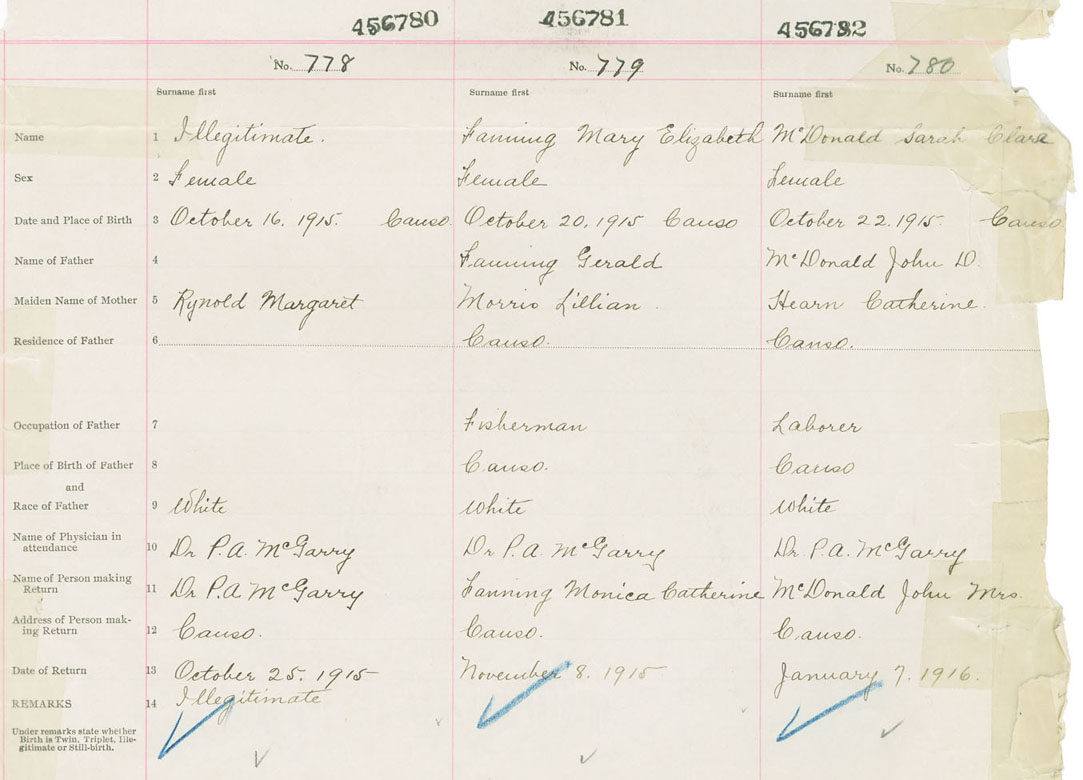 456780 456781 456782
No. 778 No. 779 No. 780
Surname first Surname first Surname first
Name 1 Illegitimate. Fanning Mary Elizabeth McDonald Sarah Clare
Sex 2 Female Female Female
Date and Place of Birth 3 October 16. 1915. Canso. October 20, 1915 Canso October 22. 1915. Canso.
Name of Father 4 Fanning Gerald McDonald John D.
Maiden Name of Mother 5 Rynold Margaret Morris Lillian. Hearn Catherine.
Residence of Father 6 Canso. Canso.
Occupation of Father 7 Fisherman Laborer
Place of Birth of Father 8 Canso. Canso
and
Race of Father 9 White White White
Name of Physician in
attendance 10 Dr P.A. McGarry Dr P.A. McGarry Dr. P.A. McGarry
Name of Person making
Return 11 Dr P.A McGarry Fanning Monica Catherine McDonald John Mrs.
Address of Person mak-
ing Return 12 Canso. Canso. Canso.
Date of Return 13 October 25. 1915 November 8. 1915 January 7. 1916.
REMARKS 14 Illegitimate
Under remarks state whether
Birth is Twin, Triplet, Ille-
gitimate or Still-birth.